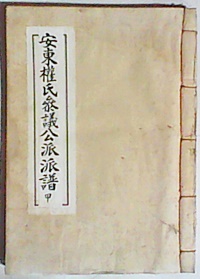 安東權氏叅議公派派譜 甲